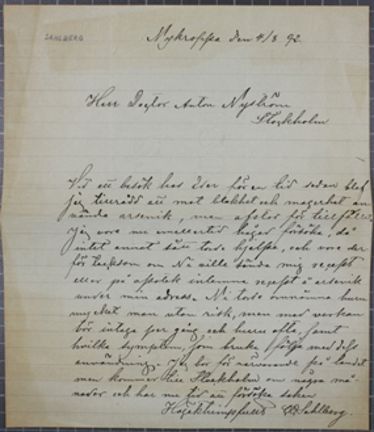 SAHLBERG
Nykroppa den 4/8 92.
Herr Doctor Anton Nyström
Stockholm
Vid ett besök hos Eder för en tid sedan blef
jag tillrådd att mot blekhet och magerhet an-
vända arsenik, men afslog för tillfället.
Jag vore nu emellertid hågad försöka, då
intet annat sätt torde hjelpa, och vore der-
för tacksam om Ni ville sända mig recept
eller på apotek inlemna recept å arsenik
under min adress. Ni torde omnämna huru
mycket man utan risk, men med verkan
bör intaga per gång och huru ofta, samt
hvilka symptom, som bruka följa med dess
användning. Jag bor för närvarande på landet
men kommer till Stockholm om några må-
nader och har nu tid att försöka saken
Högaktningsfullt Sahlberg.